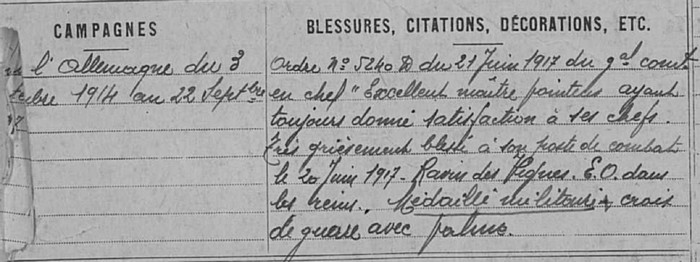 CAMPAGNES
l'Allemagne du 3
tobre 1914 au 22 Septbre
17
BLESSURES, CITATIONS, DÉCORATIONS, ETC.
Ordre No 5240 D du 21 Juin 1917 du gal comt
en chef "Excellent maître pointeur ayant
toujours donné satisfaction à ses chefs.
Très grièvement blessé à son poste de combat
le 20 Juin 1917 - Ravin des Vignes. E.O. dans
les reins., Médaille militaire + croix
de guerre avec palme.